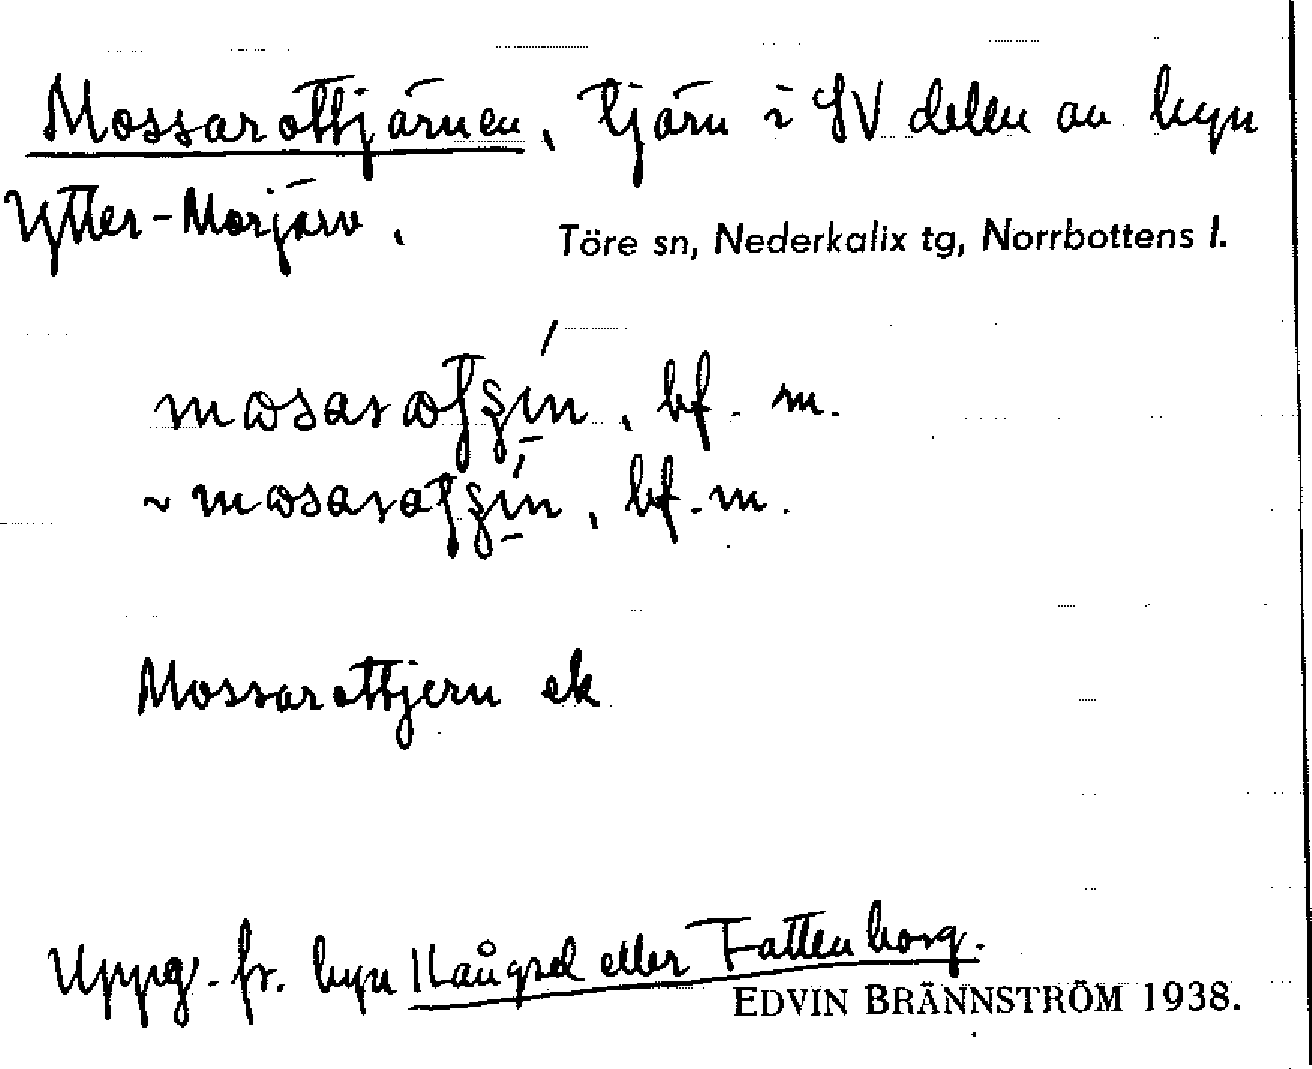 Mossarottjärnen, tjärn i SV delen av byn
Ytter-Morjärv.
Töre sn, Nederkalix tg, Norrbottens l.
bf. m.
~ bf. m.
Mossarottjern ek
Uppg. fr. byn Kaungsel eller Fattenborg.
EDVIN BRÄNNSTRÖM 1938.